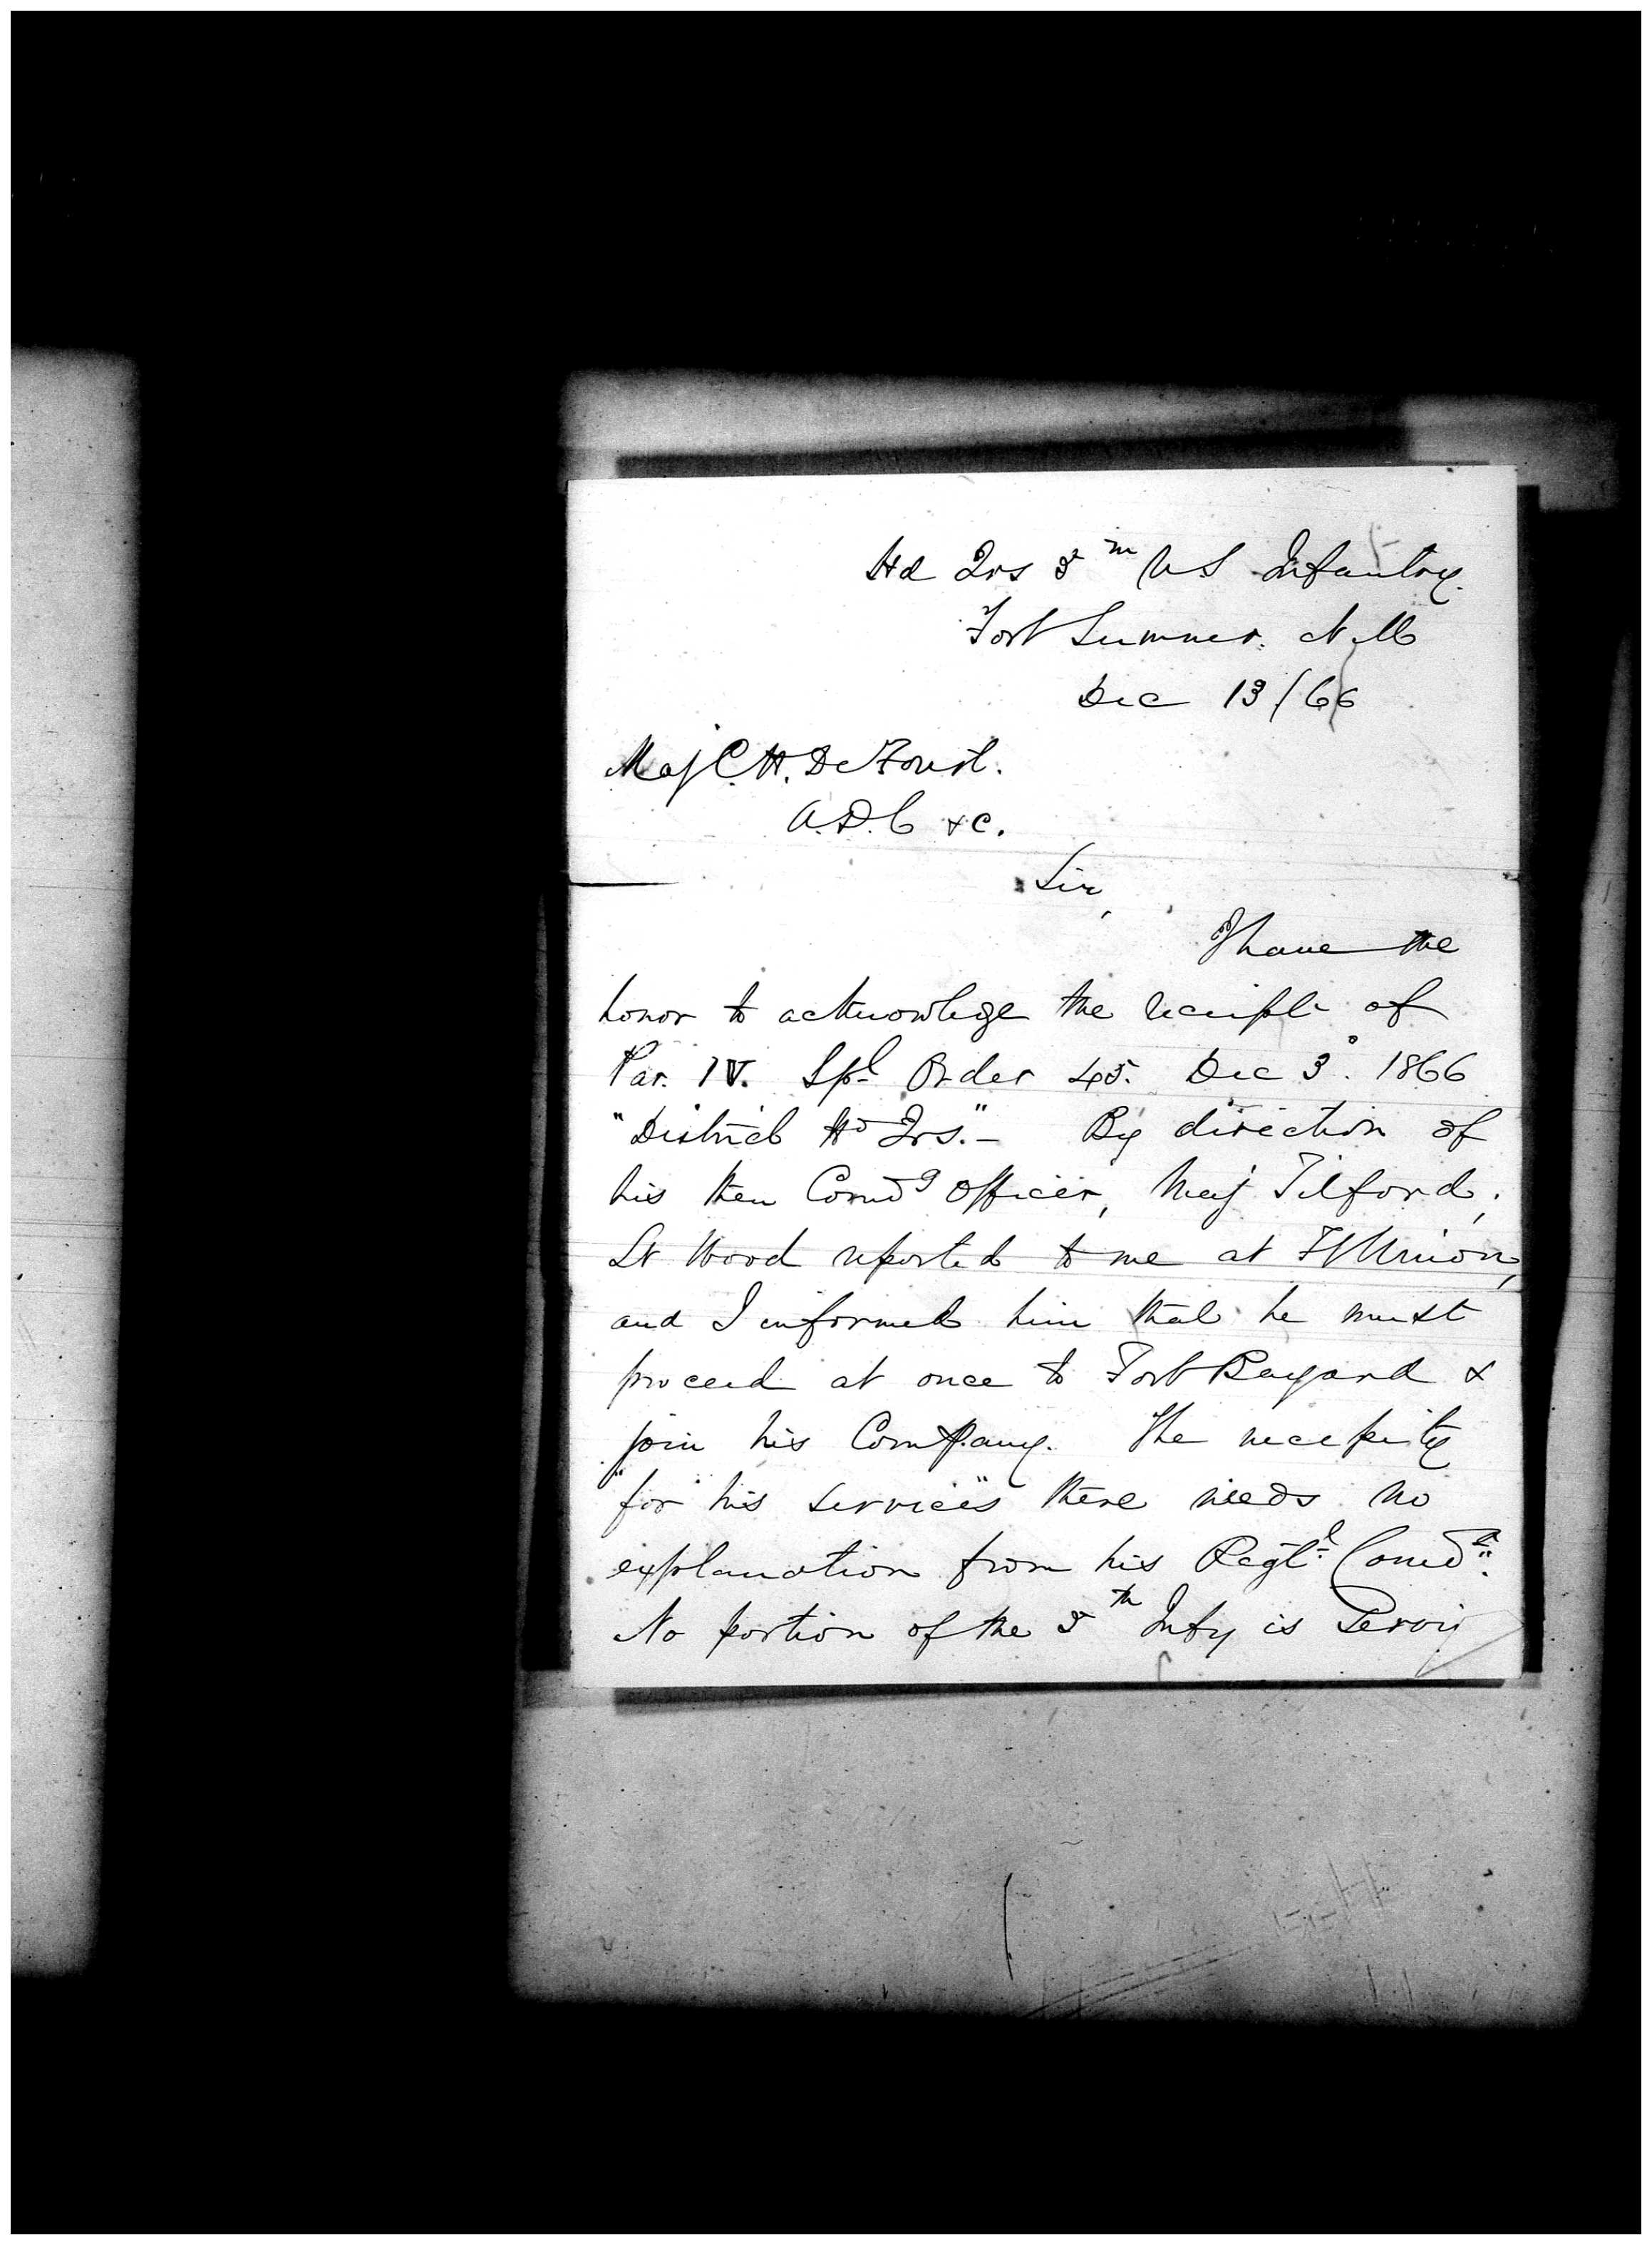 Hd Qrs 5th U S Infantry.
Fort Sumner. N. M
Dec 13/66
Maj C. H. De Forrest.
A. D. C &c.
Sir,
I have the
honor to acknowledge the receipt of
Par. IV. Spl Order 45. Dec 3d. 1866
"District Hd Qrs." - By direction of
his then Comdg Officer, Maj Tilford,
Lt Wood reported to me at Ft Union,
and I informed him that he must
proceed at once to Fort Bayard &
join his Company. The necessity
"for his services" there needs no
explanation from his Regtl Comdr.
No portion of the 5th Infy is